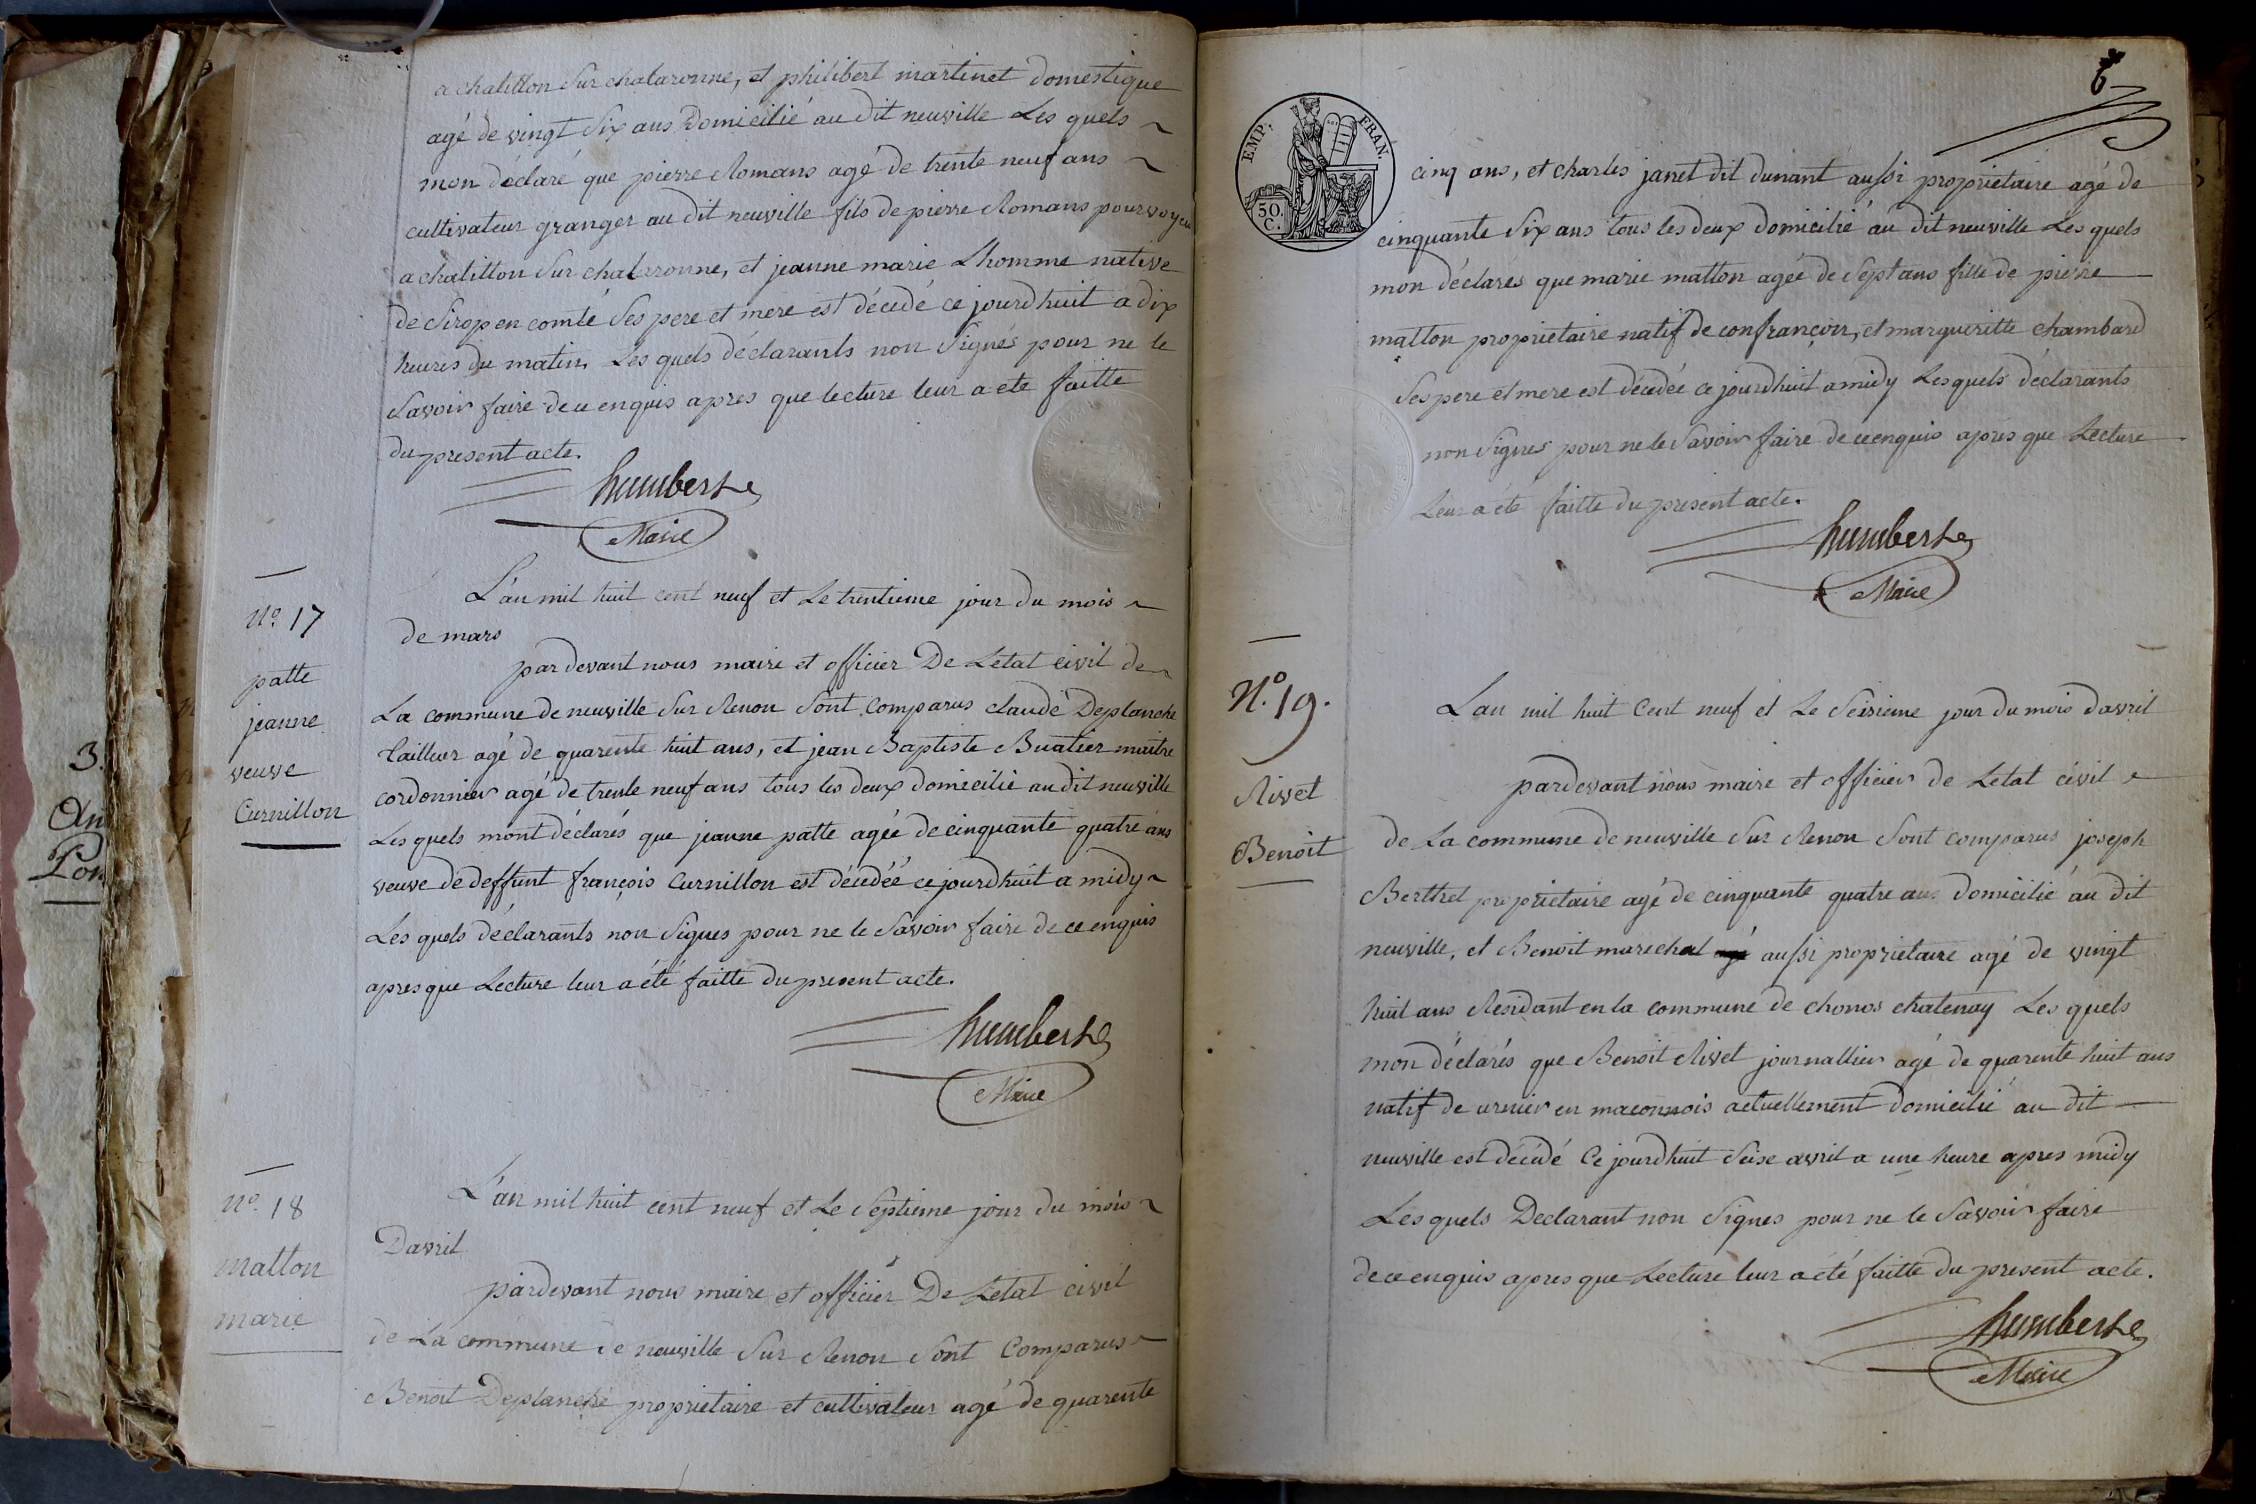 a chatillon Sur chalaronne, et philibert martinet domestique
agé de vingt Six ans Domicilié au dit neuville Les quels
mon déclaré que pierre Romans agé de trente neuf ans
cultivateur granger au dit neuville fils de pierre Romans pourvoyeur
a chatillon Sur chalaronne, et jeanne marie Lhomme native
de Sirop en comté Ses pere et mere est décedé ce jourdhuit a dix
heures du matin. Les quels déclarants non Signés pour ne le
Savoir faire de ce enquis apres que lecture leur a ete faitte
du present acte.
humbert
Maire
N.o 17
patte
jeanne
veuve
Curnillon
L'an mil huit cent neuf et Le trentieme jour du mois
de mars
pardevant nous maire et officier De Letat civil de
La commune de neuville Sur Renon Sont Comparus claude Deplanche
tailleur agé de quarente huit ans, et jean Baptiste Buatier maitre
cordonnier agé de trente neuf ans tous les deux domicilié au dit neuville
Les quels mont déclarés que jeanne patte agée de cinquante quatre ans
veuve de deffunt françois Curnillon est décedéé ce jourdhuit a midy
Les quels déclarants non Signes pour ne le Savoir faire de ce enquis
apres que Lecture leur a été faitte du present acte.
humbert
Maire
N.o 18
matton
marie
L'an mil huit cent neuf et Le Septieme jour du mois
Davril
pardevant nous maire et officier De Letat civil
de La commune de neuville Sur Renon Sont Comparus
Benoit Deplanche proprietaire et cultivateur agé de quarente
6
EMP. FRAN.
50.
C.
cinq ans, et charles janet dit dunant aussi proprietaire agé de
cinquante Six ans tous les deux domicilié au dit neuville Les quels
mon déclarés que marie matton agée de Sept ans fille de pierre
matton proprietaire natif de confrançon, et margueritte chambard
Ses pere et mere est décedée ce jourdhuit a midy Lesquels déclarants
non Signes pour ne le Savoir faire de ce enquis apres que Lecture
Leur a été faitte du present acte.
humbert
Maire
N.o 19.
Rivet
Benoit
Lan mil huit Cent neuf et Le Seisieme jour du mois davril
pardevant nous maire et officier de Letat civil
de La commune de neuville Sur Renon Sont comparus joseph
Berthet proprietaire agé de cinquante quatre ans domicilié au dit
neuville, et Benoit marechal aussi proprietaire agé de vingt
huit ans Residant en la commune de chonos chatenay Les quels
mon déclarés que Benoit Rivet journallier agé de quarente huit ans
natif de urnier en maconnois actuellement domicilié au dit
neuville est décédé Ce jourdhuit Seise avril a une heure apres midy
Les quels Declarant non Signes pour ne le Savoir faire
de ce enquis apres que Lecture leur a été faitte du present acte.
humbert
Maire
3.